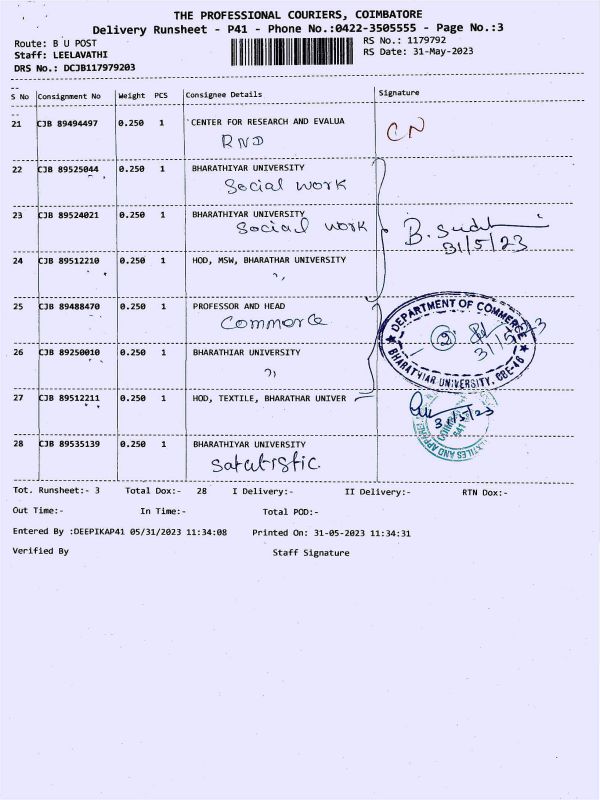 THE PROFESSIONAL COURIERS, COIMBATORE
Delivery Runsheet - P41 - Phone No.:0422-3505555 - Page No.:3
Route: B U POST
RS No.: 1179792
Staff: LEELAVATHI
RS Date: 31-May-2023
DRS No.: DCJB117979203
S No Consignment No Weight PCS Consignee Details Signature
21 CJB 89494497 0.250 1 CENTER FOR RESEARCH AND EVALUA
RND
CN
22 CJB 89525044 0.250 1 BHARATHIYAR UNIVERSITY
Social work
23 CJB 89524021 0.250 1 BHARATHIYAR UNIVERSITY
Social work
31/5/23
24 CJB 89512210 0.250 1 HOD, MSW, BHARATHAR UNIVERSITY
"
25 CJB 89488470 0.250 1 PROFESSOR AND HEAD
Commerce
DEPARTMENT OF COMMERCE
2
31/5/23
BHARATHIAR UNIVERSITY, CBE-46
26 CJB 89250010 0.250 1 BHARATHIYAR UNIVERSITY
"
27 CJB 89512211 0.250 1 HOD, TEXTILE, BHARATHAR UNIVER
31/5/23
TEXTILES AND APPAREL
28 CJB 89535139 0.250 1 BHARATHIYAR UNIVERSITY
Satatistic.
Tot. Runsheet:- 3 Total Dox:- 28 I Delivery:- II Delivery:- RTN Dox:-
Out Time:- In Time:- Total POD:-
Entered By :DEEPIKAP41 05/31/2023 11:34:08 Printed On: 31-05-2023 11:34:31
Verified By Staff Signature